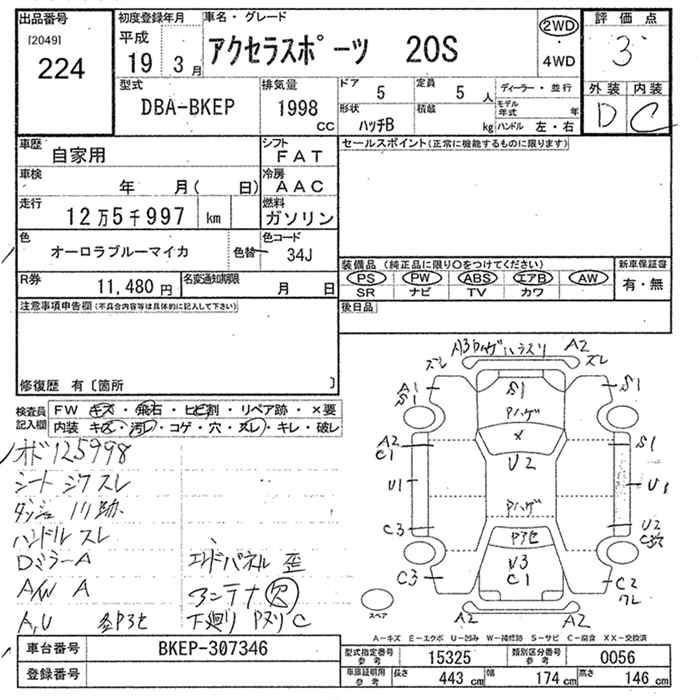 出品番号 初度登録年月 車名・グレード 2WD 評価点
[2049] 平成 アクセラスポーツ 20S ・ 3
224 19 3月 4WD
型式 排気量 ドア 5 定員 5人 ディーラー・並行 外装 内装
DBA-BKEP 1998 cc 形状 ハッチB 積載 kg モデル年式 年 D C
ハンドル 左・右
車歴 自家用 シフト FAT セールスポイント(正常に機能するものに限ります)
車検 年 月( 日) 冷房 AAC
走行 12万5千997 km 燃料 ガソリン
色 オーロラブルーマイカ 色替 色コード 34J
装備品(純正品に限り○をつけてください) 新車保証書
PS PW ABS エアB AW 有・無
SR ナビ TV カワ
R券 11,480円 名変通知期限 月 日
後日品
注意事項申告欄(不具合内容等は具体的に記入して下さい)
修復歴 有〔箇所 〕
検査員記入欄 FW キズ・飛石・ヒビ割・リペア跡・×要
内装 キズ・汚レ・コゲ・穴・スレ・キレ・破レ
オド125998
シート シワ スレ
ハンドル スレ
DミラーA
A/W A
A,U
エンドパネル 歪
アンテナ 欠
下廻り
A2
ズレ
ズレ
A1
S1
S1
Pハゲ
S1
×
U2
A2
C1
S1
U1
U1
Pハゲ
C3
U2
U3
C1
C3
C2
スペア
A2
A2
A-キズ E-エクボ U-凹み W-補修跡 S-サビ C-腐食 XX-交換済
車台番号 BKEP-307346
登録番号
型式指定番号 参考 15325 類別区分番号 参考 0056
車庫証明用 参考 長さ 443 cm 幅 174 cm 高さ 146 cm